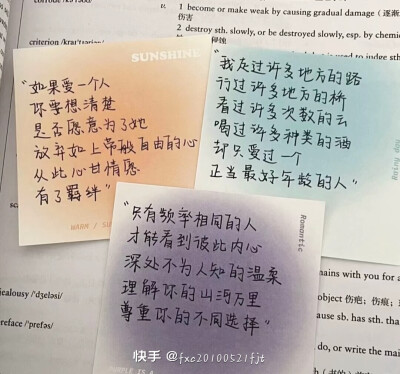 corrode /kəˈrəʊd/
v.
1 become or make weak by causing gradual damage (逐渐
伤害
2 destroy sth. slowly, or be destroyed slowly, esp. by chemic
criterion /kraɪˈtɪəriən/
SUNSHINE
"如果爱一个人
你要想清楚
是否愿意为了她
放弃如上帝般自由的心
从此心甘情愿
有了羁绊"
WARM / SU
"我走过许多地方的路
行过许多地方的桥
看过许多次数的云
喝过许多种类的酒
却只爱过一个
正当最好年龄的人"
Rainy day
"只有频率相同的人
才能看到彼此内心
深处不为人知的温柔
理解你的山海万里
尊重你的不同选择"
Romantic
PEOPLE IS A
jealousy /ˈdʒeləsi/
preface /ˈprefəs/
mains with you for a
object 伤疤; 伤痕;
ause sb. has sth. tha
do, or write the mai
快手 @fxc20100521fjt